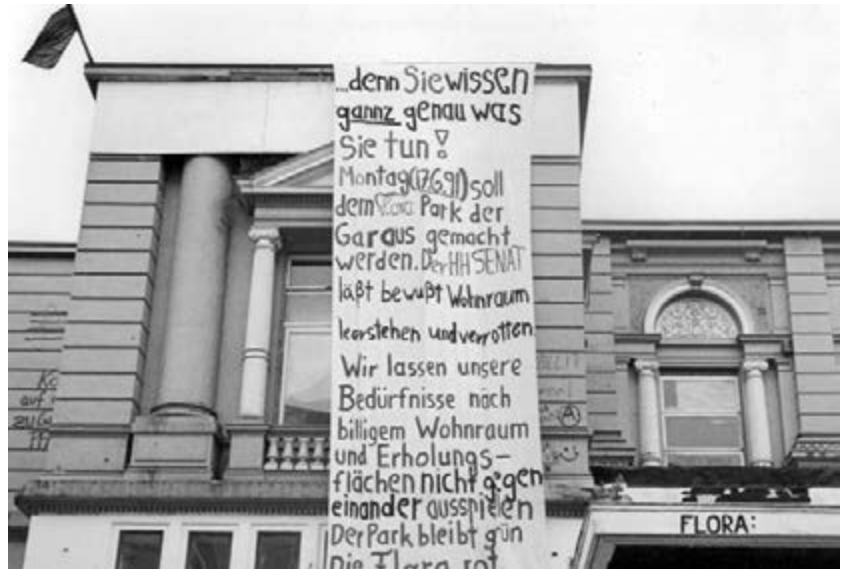 ...denn Sie wissen
gannz genau was
Sie tun!
Montag (17.6.91) soll
dem Flora Park der
Garaus gemacht
werden. Der HH SENAT
läßt bewußt Wohnraum
leerstehen und verrotten
Wir lassen unsere
Bedürfnisse nach
billigem Wohnraum
und Erholungs-
flächen nicht gegen
einander ausspielen
Der Park bleibt gün
Die Flora rot
FLORA: